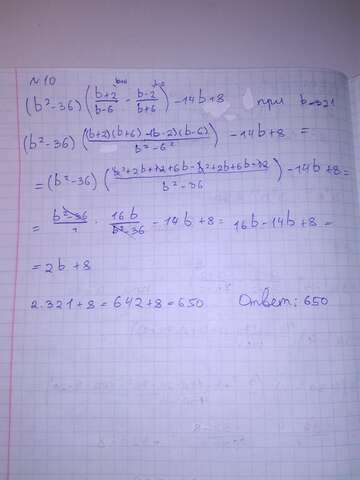 №10
(b²-36)(b+2/b-6 - b-2/b+6) -14b+8 при b=321
(b²-36)((b+2)(b+6)-(b-2)(b-6)/b²-6²) -14b+8 =
=(b²-36)(b²+2b+12+6b-b²+2b+6b-12/b²-36) -14b+8=
= b²-36/1 · 16b/b²-36 -14b+8= 16b-14b+8 =
=2b+8
2·321+8=642+8=650 Ответ: 650